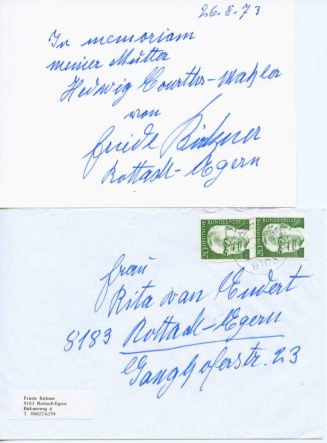 26.8.73
In memoriam
meiner Mutter
Hedwig Courths-Mahler
von
Friede Birkner
Rottach-Egern
20 DEUTSCHE BUNDESPOST
20 DEUTSCHE BUNDESPOST
Frau
Rita van Endert
8183 Rottach-Egern
Ganghoferstr. 23
Friede Birkner
8183 Rottach-Egern
Birknerweg 6